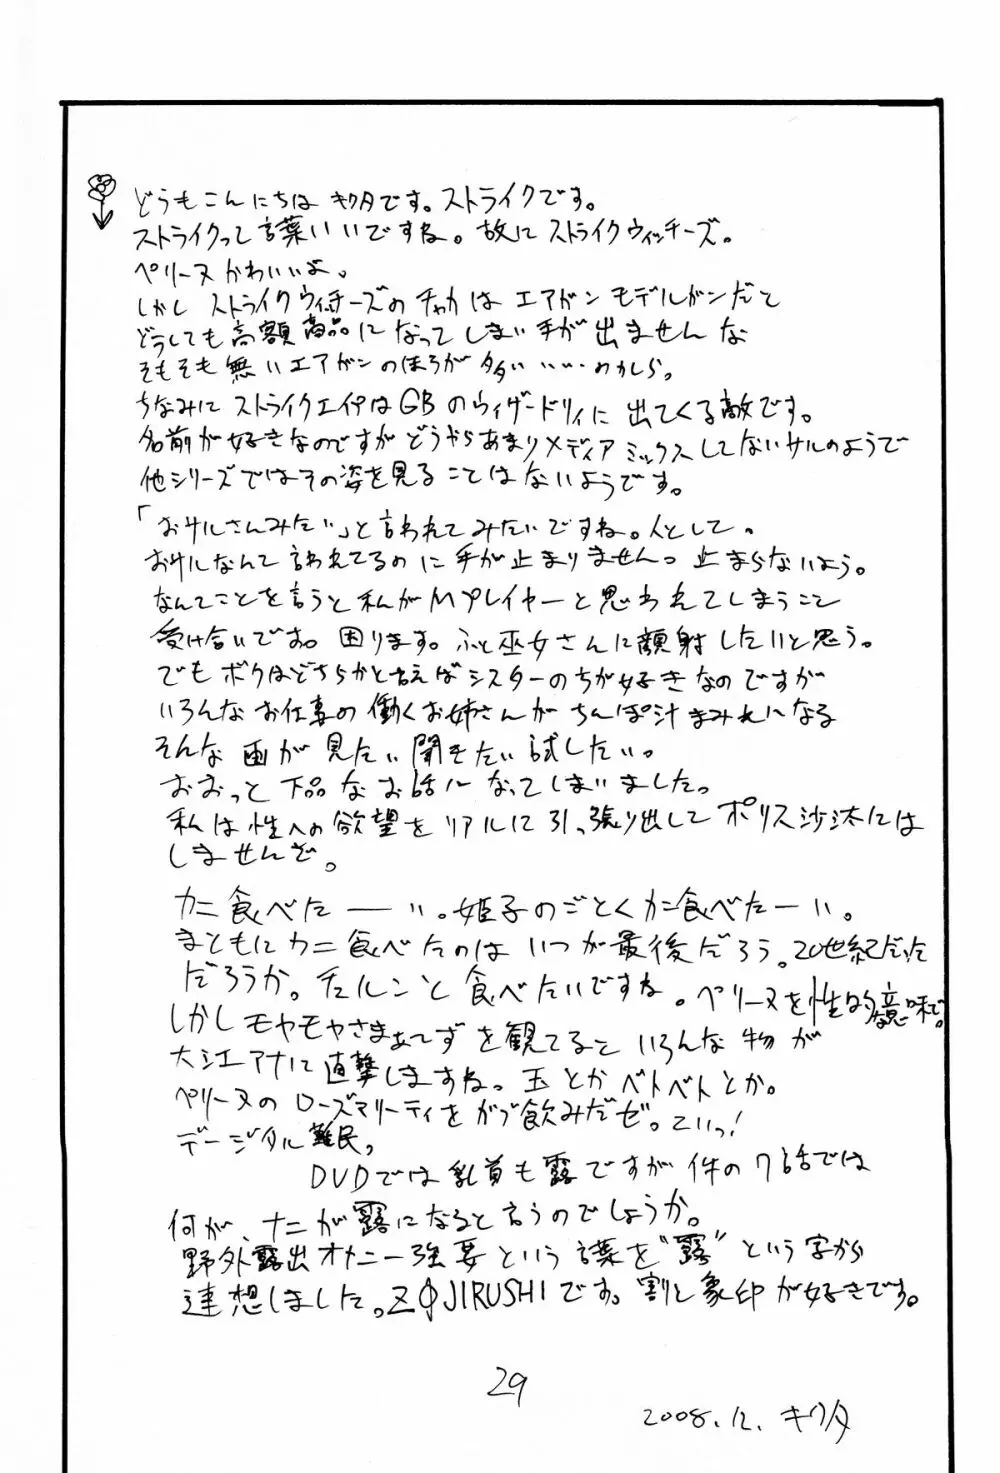 どうもこんにちは キクタです。ストライクです。
ストライクって言葉いいですね。故にストライクウィッチーズ。
ペリーヌかわいいよ。
しかし ストライクウィッチーズのチャカは エアガン モデルガンだと
どうしても高額商品になってしまい手が出ませんな
そもそも無いエアガンのほうが多い‥‥かしら。
ちなみに ストライクエイプはGBのウィザードリィに出てくる敵です。
名前が好きなのですがどうやらあまりメディアミックスしてないサルのようで
他シリーズではその姿を見ることはないようです。
「おサルさんみたい」と言われてみたいですね。人として。
おサルなんて言われてるのに手が止まりませんっ 止まらないよう。
なんてことを言うと私がMプレイヤーと思われてしまうこと
受け合いです。困ります。ふと巫女さんに顔射したいと思う。
でもボクはどちらかと言えばシスターのが好きなのですが
いろんなお仕事の働くお姉さんがちんぽ汁まみれになる
そんな画が見たい聞きたい試したい。
おおっと下品なお話になってしまいました。
私は性への欲望をリアルに引っ張り出してポリス沙汰には
しませんぞ。
カニ食べたーい。姫子のごとくカニ食べたーい。
まともにカニ食べたのはいつが最後だろう。20世紀だった
だろうか。チュルンと食べたいですね。ペリーヌを性的な意味で。
しかしモヤモヤさまぁ〜ずを観てるといろんな物が
大江アナに直撃しますね。玉とかベトベトとか。
ペリーヌのローズマリーティをがぶ飲みだゼ。こいっ!
デージタル難民。
DVDでは乳首も露ですが件の7話では
何が、ナニが露になると言うのでしょうか。
野外露出オナニー強要という言葉を"露"という字から
連想しました。ZOJIRUSHIです。割と象印が好きです。
29
2008.12. キクタ